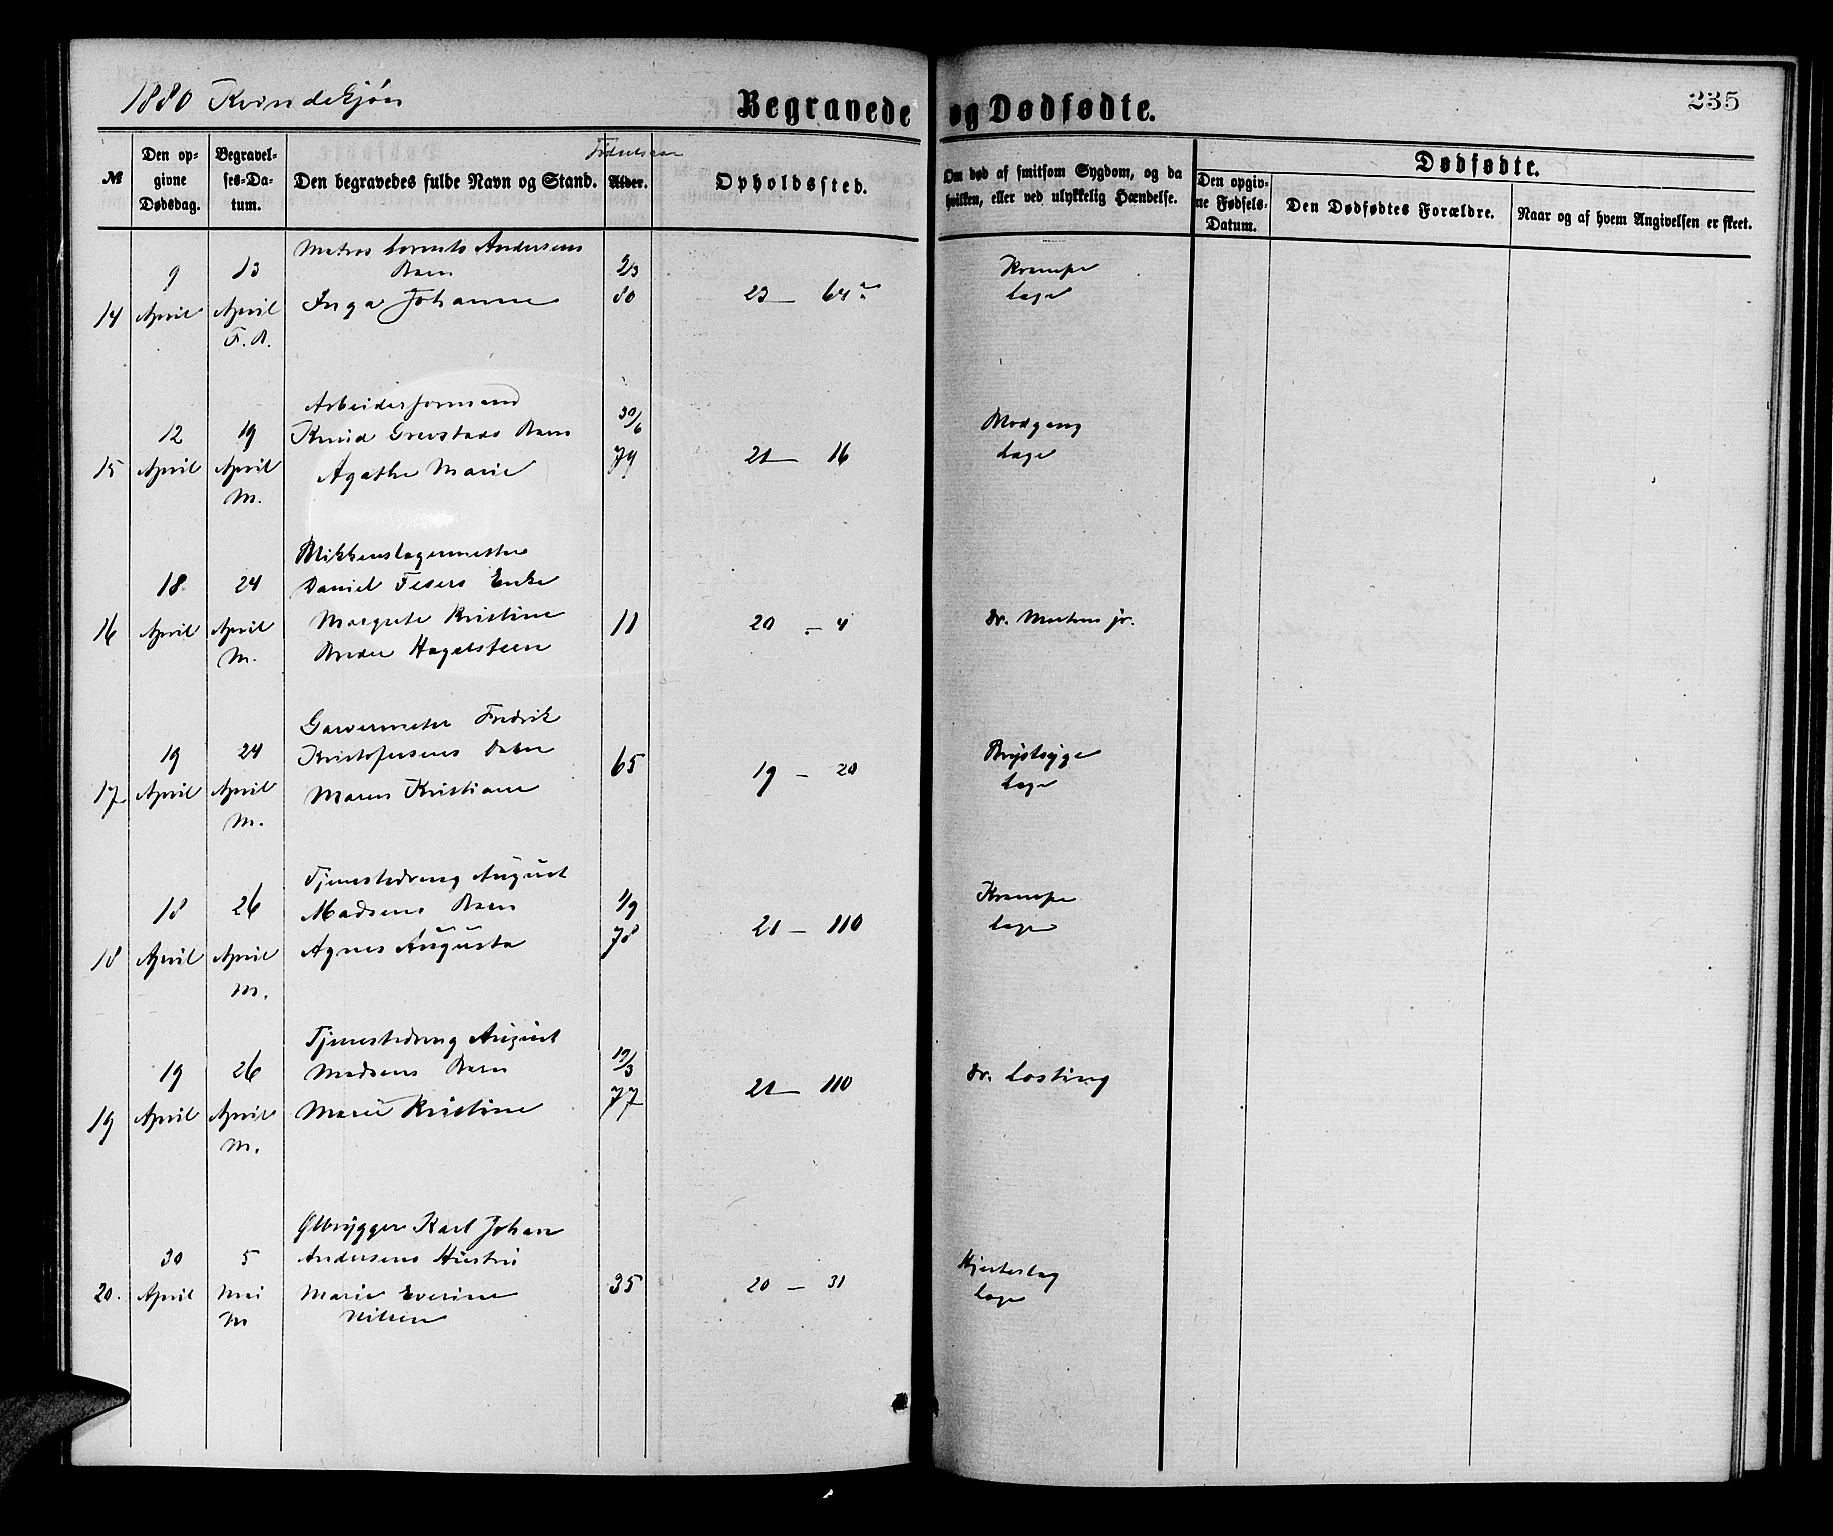 1880 Kvindekjøn
Begravede og Dødfødte.
235
№
Den op-
givne
Dødsdag.
Begravel-
ses-Da-
tum.
Den begravedes fulde Navn og Stand.
Fødselsaar
Alder.
Opholdssted.
Om død af smitsom Sygdom, og da
hvilken, eller ved ulykkelig Hændelse.
Dødfødte.
Den opgiv-
ne Fødsels-
Datum.
Den Dødfødtes Forældre.
Naar og af hvem Angivelsen er skeet.
14
9
April
13
April
F. B.
Matros Lorents Andersens
Barn
Inga Johanne
2/3
80
23 — 64
Krampe
Læge
15
12
April
19
April
M.
Arbeidsformand
Knud Grevstads Barn
Agathe Marie
30/6
79
21 — 16
Modgang
Læge
16
18
April
24
April
M.
Blikkenslagermester
Daniel Enke
Margrete Kristine
Hagelsteen
11
20 — 4
Dr. Martens jr.
17
19
April
24
April
M.
Garvermester Fredrik
Kristofersens Datter
Maren Kristiane
65
19 — 20
Brystsyge
Læge
18
18
April
26
April
M.
Tjenestedreng August
Madsens Barn
Agnes Augusta
1/9
78
21 — 110
Krampe
Læge
19
19
April
26
April
M.
Tjenestedreng August
Madsens Barn
Marie Kristine
19/3
77
21 — 110
Dr. Losting
20.
30
April
5
Mai
M
Ølbrygger Karl Johan
Andersens Hustru
Marie Everine
Nilsen
35
20 — 31
Hjerteslag
Læge